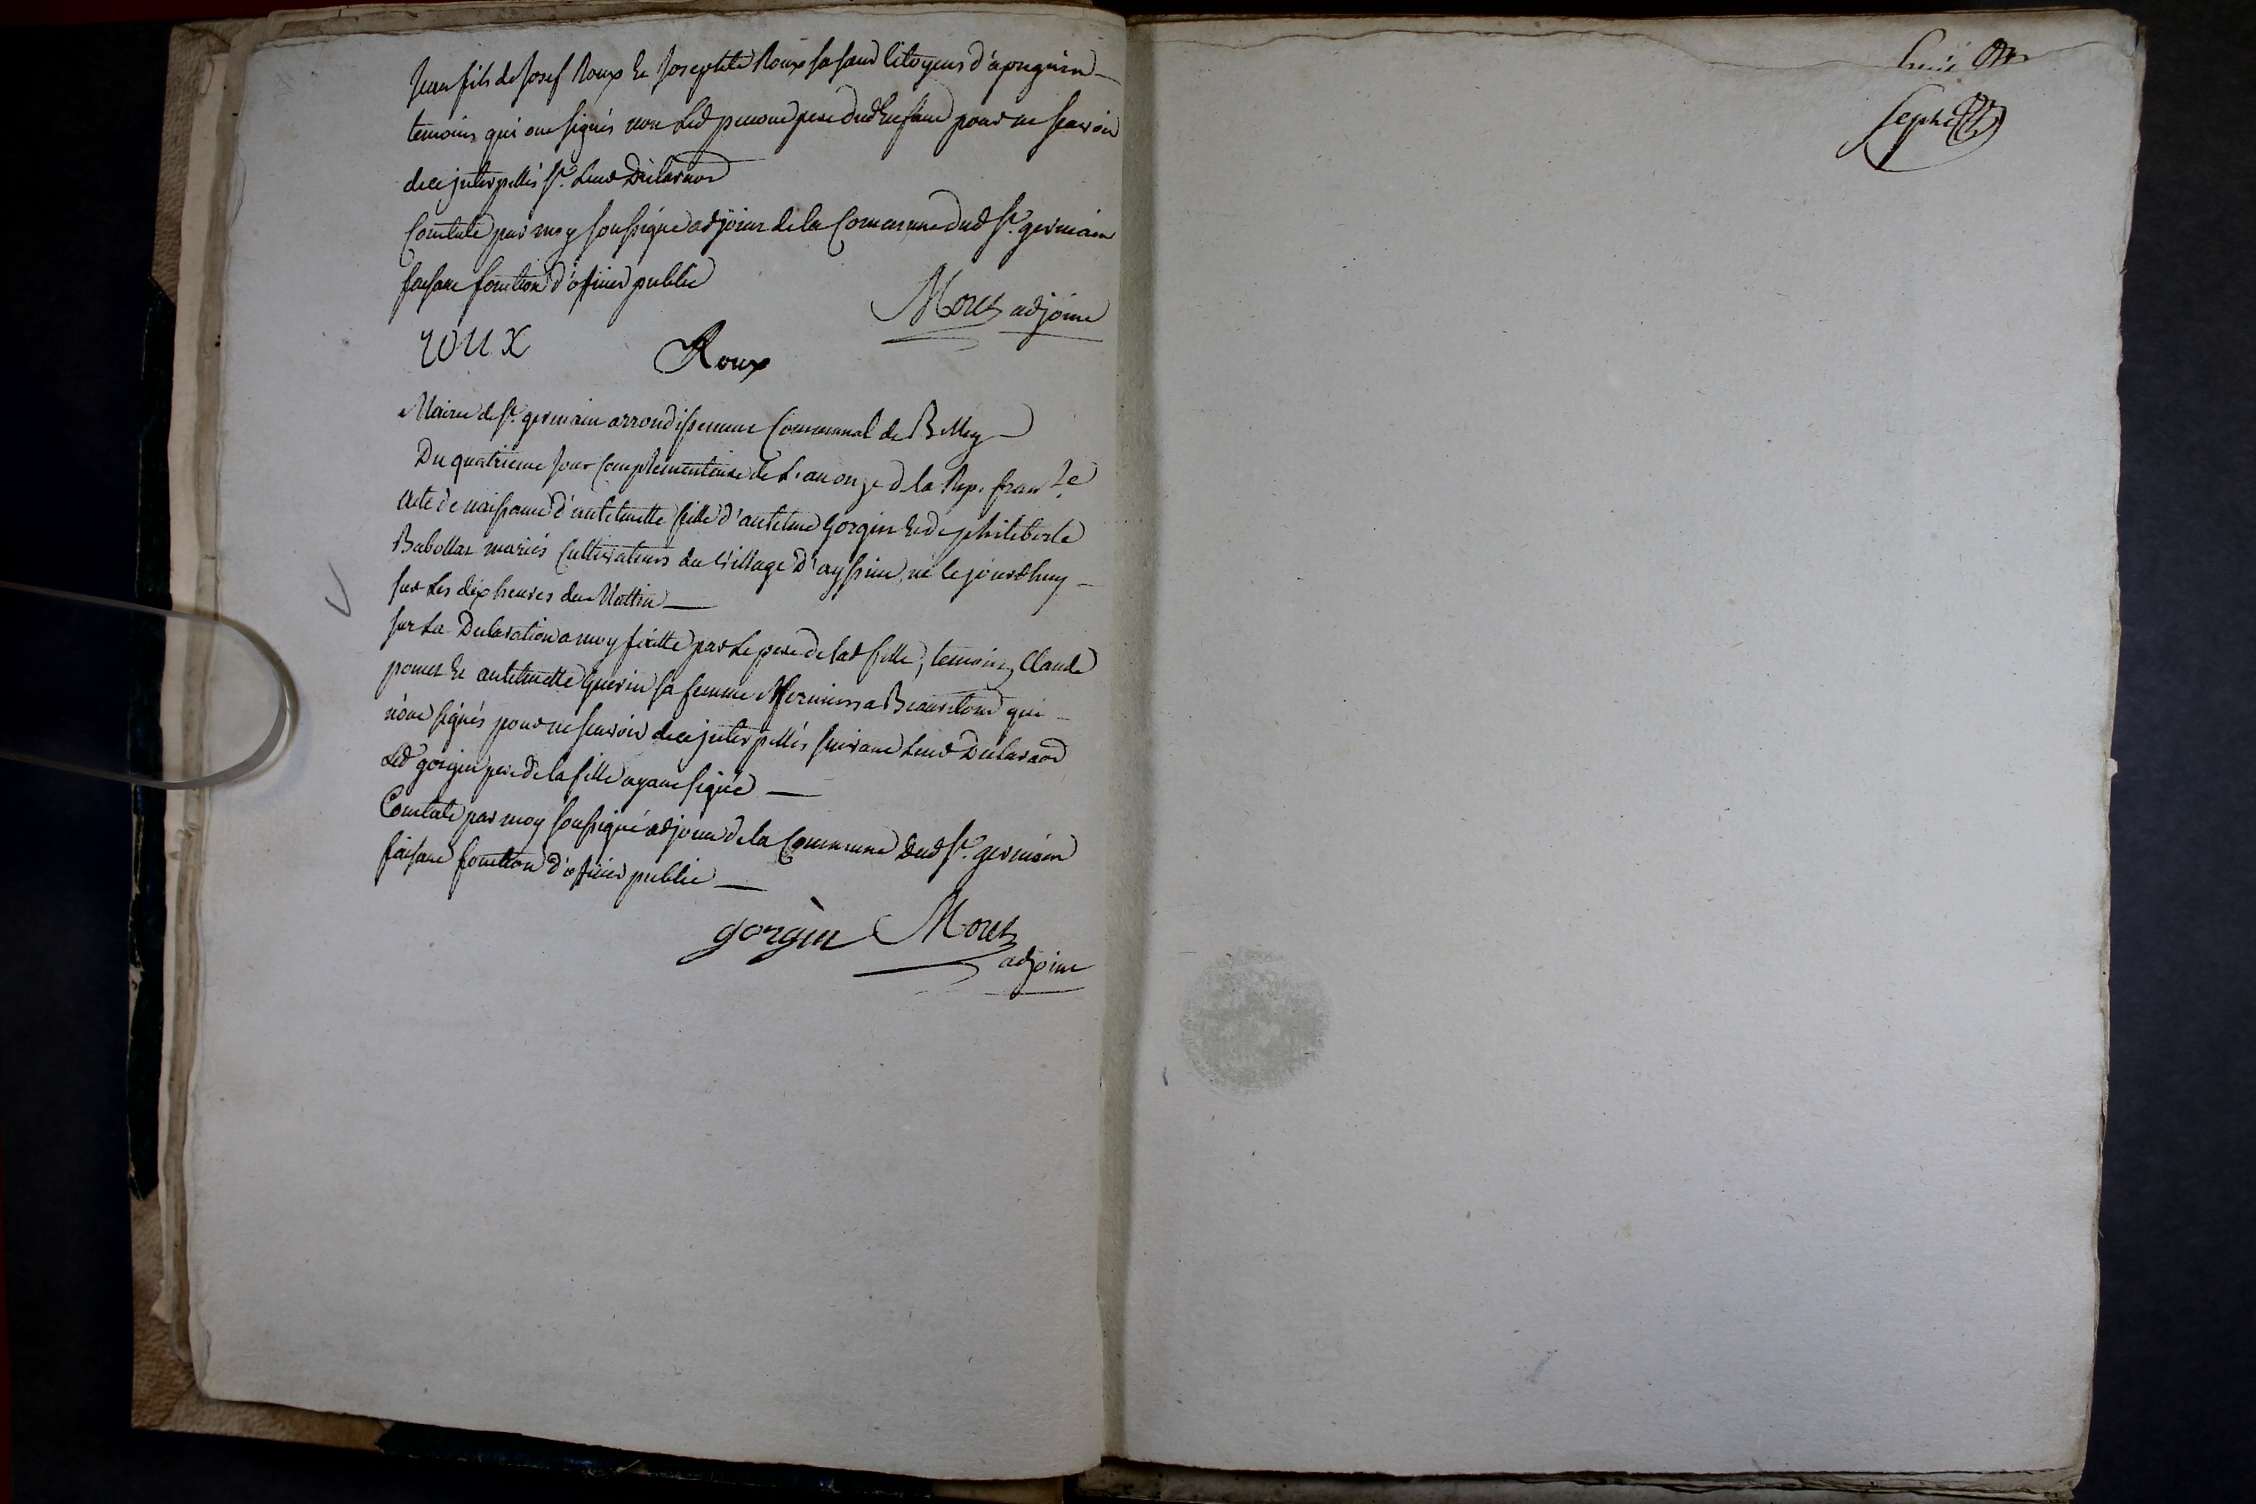 Jean fils de Josef Roux et Josephte Roux sa sœur Citoyens d'apregnin
temoins qui ont signés non Led pere dud Enfant pour ne scavoir
de ce jnterpellés St. Leur Declaraon
Constaté par moy soussigné adjoint de la Commune dud St. germain
faisant fonction d'officier public
Moret adjoint
roux Roux
Mairie de St. germain arrondissement Communal de Belley
Du quatrieme jour Complementaire de L'an onze d la Rep. fran.se
acte de naissance d'antelmette fille d'antelme gorgin et de philiberte
Babollat mariés Cultivateurs du village d', né le jourdhuy
sur Les dix heures du Mattin
sur La Declaration a moy faitte par Le pere de lad fille, temoins Claude
pomet Et antelmette guerin sa femme qui
n'ont signés pour ne scavoir de ce jnterpellés suivant Leur Declaraon
Led gorgin pere de la fille ayant signé
Constaté par moy soussigné adjoint de la Commune dud St. germain
faisant fonction d'officier public
gorgin Moret
adjoint